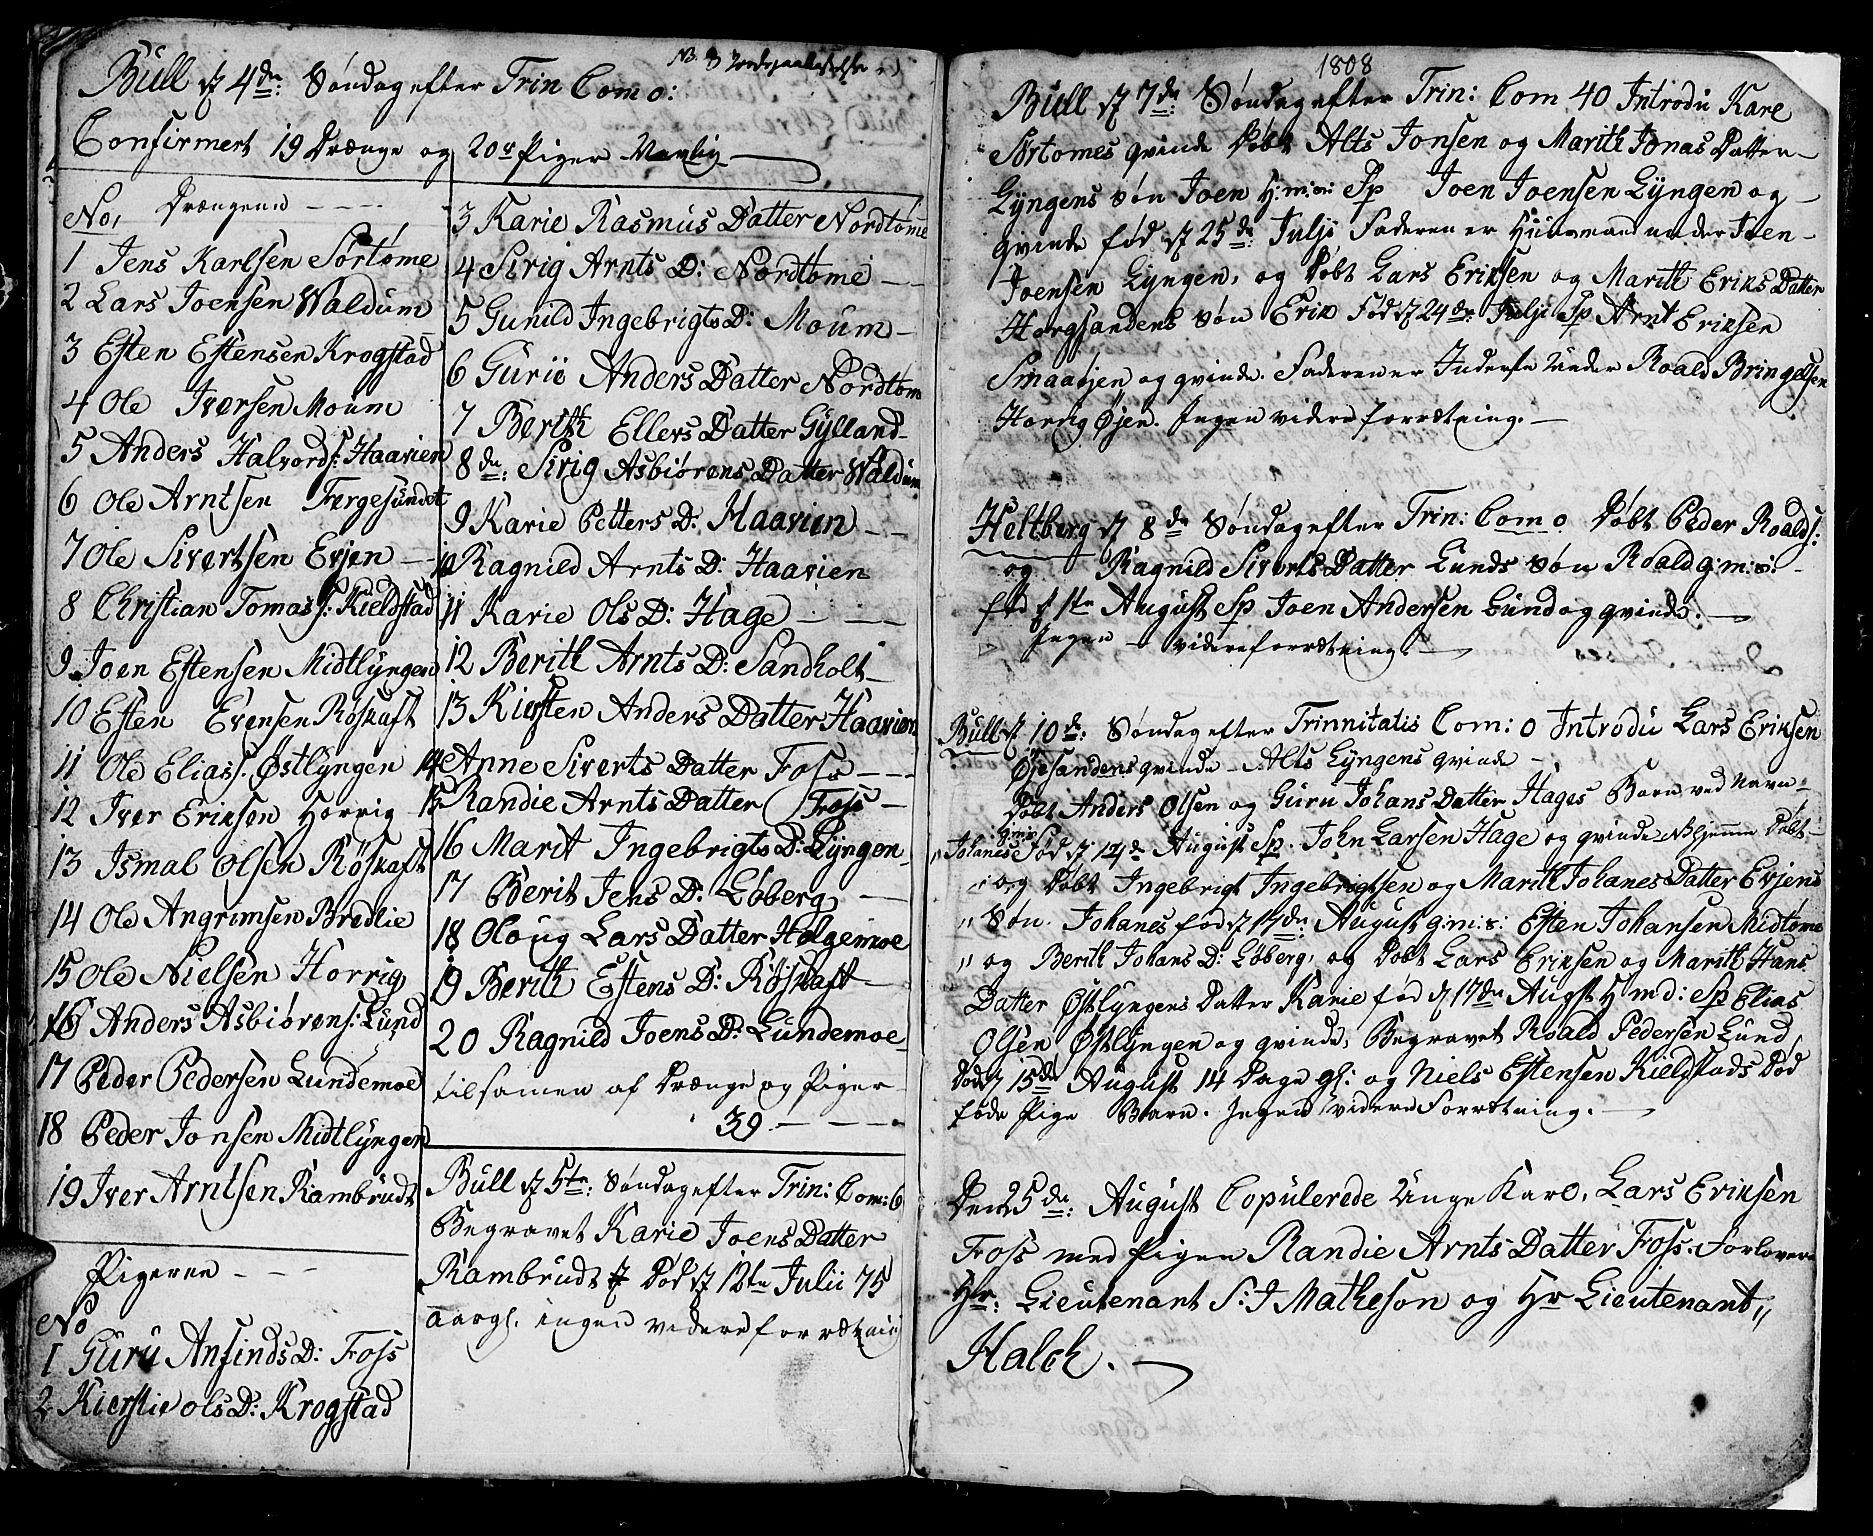 Büll d 4de: Søndag efter Trin Com o:
Confirmert 19 Drænge og 20ve Piger Navnlig
No, Drængene
1 Jens Karlsen Sørtøme
2 Lars Joensen Waldum
3 Esten Estensen Krogstad
4 Ole Iversen Moum
5 Anders Halvords: Haavien
6 Ole Arntsen Fergesundet
7 Ole Sivertsen Evjen
8 Christian Tomass: Kieldstad
9 Joen Estensen Midtlyngen
10 Esten Evensen Røskaft
11 Ole Eliass. Østlyngen
12 Iver Eriksen Horrig
13 Ismal Olsen Røskaft
14 Ole Angrimsen Bredlie
15 Ole Nielsen Horrig
16 Anders Asbiørens: Lund
17 Peder Pedersen Lundemoe
18 Peder Jonsen Midtlyngen
19 Iver Arntsen Rambrudt
Pigerne
No
1 Guru Anfinds D: Foss
2 Kierstie Ols D: Krogstad
3 Karie Rasmus Datter Nordtøme
4 Sirig Arnts D: Nordtøme
5 Gunild Ingebrigts D: Moum
6 Gurie Anders Datter Nordtøm
7 Berith Ellers Datter Gylland
8de: Sirig Asbiørens Datter Waldum
9 Karie Petters D: Haavien
10 Ragnild Arnts D: Haavien
11 Karie Ols D: Hage
12 Beritt Arnts D: Sandholt
13 Kiersten Anders Datter Haavien
14 Anne Siverts Datter Foss
15 Randie Arnts Datter Foss
16 Marit Ingebrigts D: Lyngen
17 Berit Jens D: Løberg
18 Oloug Lars Datter Holgemoe
19 Berith Estens D: Røskaft
20 Ragnild Joens D: Lundemoe
tilsamen af Drænge og Piger
39
Büll d 5te: Søndag efter Trin: Com: 6
Begravet Karie Joens Datter
Rambrudt Død d 12te Julii 75
aargl. ingen videre forrætning
1808
Büll d 7de: Søndag efter Trin: Com 40 Introdu Kare
Sørtømes qvinde Døbt Alts Jonsen og Maritt Jonas Datter
Lyngens søn Joen H:m:s: Sp Joen Joensen Lyngen og
qvinde fød d 25de: Julji Faderen er Huusmand under Joen
Joensen Lyngen, og Døbt Lars Eriksen og Maritt Eriks Datter
Horgsandens søn Erik Fød d 24de: Julji Sp Arnt Eriksen
Smaaøjen og qvinde. Faderen er Inderste Under Roald Bringelsen
Horrig Øjen. Ingen videre forrætning.
Heltberg d 8de Søndag efter Trin: Com o Døbt Peder Roalds:
og Ragnild Siverts Datter Lunds søn Roald g:m:s:
fød d 1te August Sp Joen Andersen Lund og qvinde.
Ingen videre forrætning.
Büll d 10de: Søndag efter Trinnitatis Com: o Introdu Lars Eriksen
Øjesandens qvinde Alts Lyngens qvinde
Døbt Anders Olsen og Guru Johans Datter Hages Barn ved Navn
Johanes Fød d 14de August Sp. John Larsen Hage og qvinde Hjemme Døbt
og Døbt Ingebrigt Ingebrigtsen og Maritt Johanes Datter Evjens
Søn Johanes fød d 17de: August g:m:s: Esten Johansen Midtøme
og Beritt Johans D: Løberg, og Døbt Lars Eriksen og Maritt Hans
Datter Østlyngens Datter Karie fød d 17de August H m d: Sp Elias
Olsen Østlyngen og qvinde, Begravet Roald Pedersen Lund
Død d 15de August 14 Dage gl: og Niels Estensen Kieldstads Død
føde Pige Barn. Ingen videre Forrætning.
Den 25de: August Copulerede Unge Karl, Lars Eriksen
Foss med Pigen Randie Arnts Datter Foss. Forlovere
Hr: Lieutenant S: J Matheson og Hr Lieutenant
Halck.